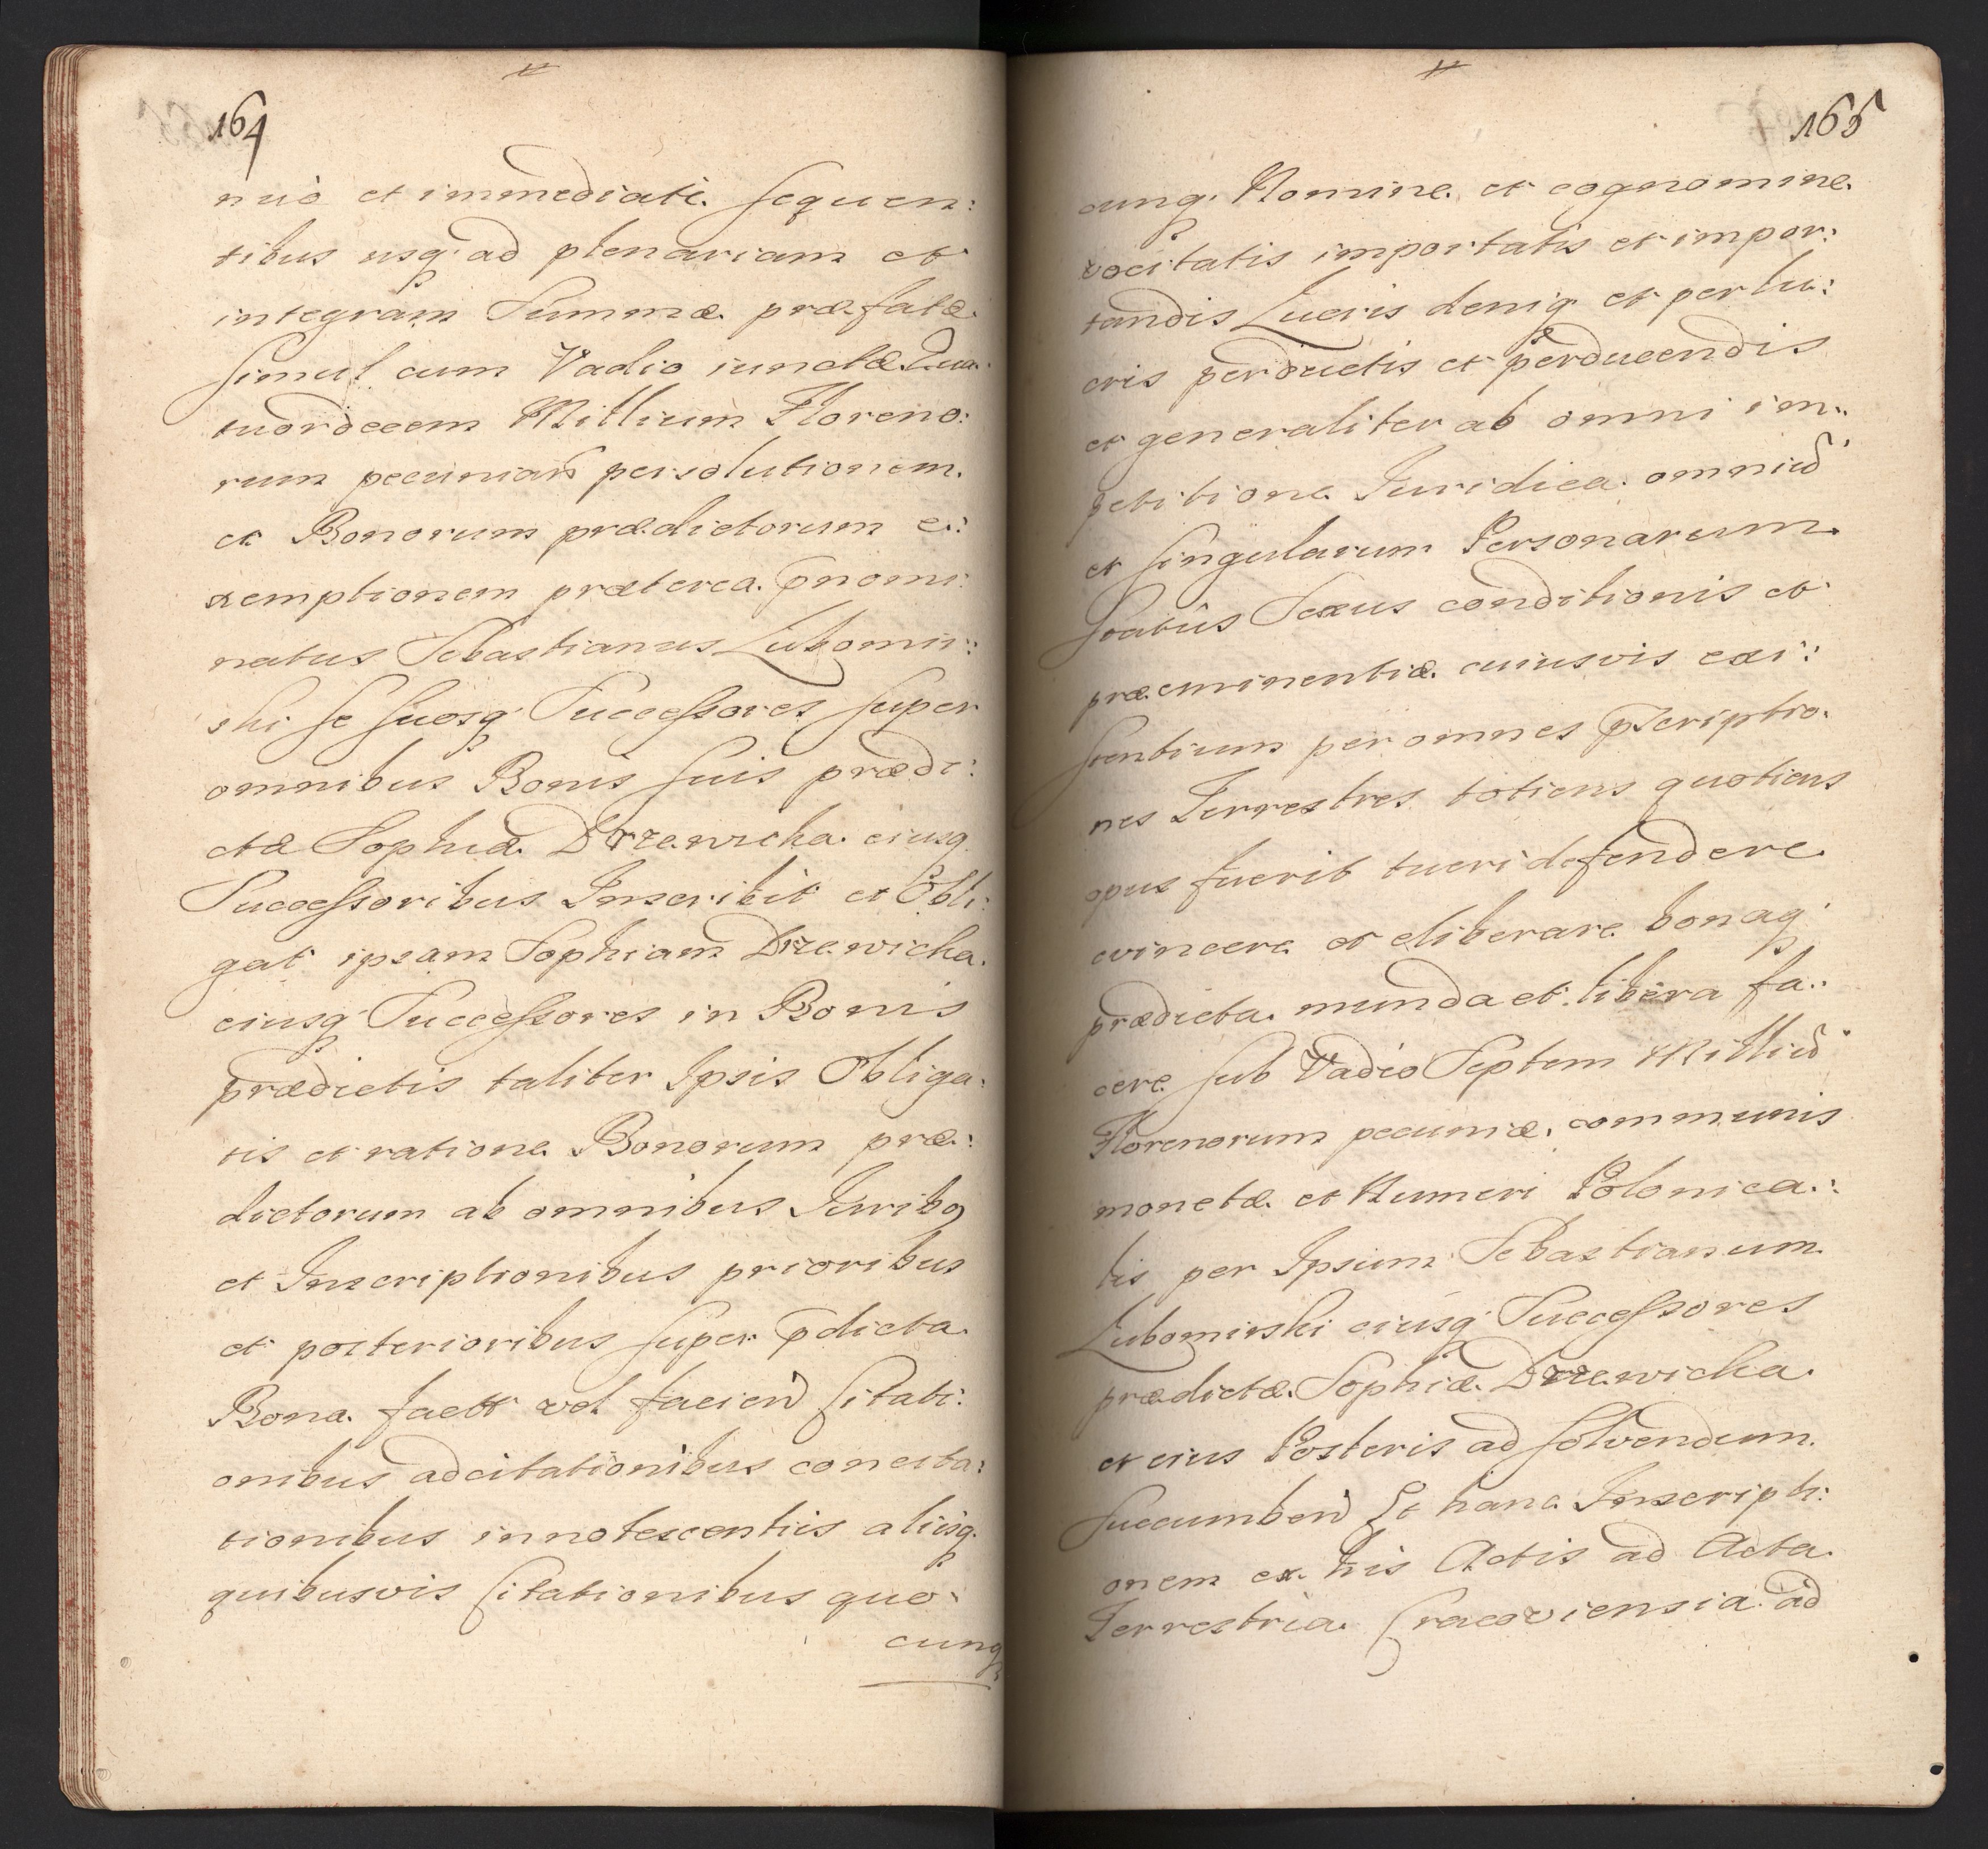 164
nuò et immediatè sequen:
tibus usq; ad plenariam et
integram Summæ præfatæ
simul cum Vadio iunctæ Qua:
tuordecem Millium Floreno:
rum pecuniar persolutionem
et Bonorum prædictorum e:
xemptionem præterea pnomi:
natus Sebastianus Lubomir:
ski se suosq; Successores super
omnibus Bonis suis prædi:
ctæ Sophiæ Drzewicka eiusq;
Successoribus Inscribit et Obli:
gat ipsam Sophiam Drzewicka
eiusq; Successores in Bonis
prædictis taliter Ipsis Obliga:
tis et ratione Bonorum præ:
dictorum ab omnibus Juribq
et Inscriptionibus prioribus
et posterioribus super pdicta
Bona fact vel faciend Citati:
onibus adcitationibus concita:
tionibus innotescentiis aliisq;
quibusvis Citationibus quo:
cunq;
165
cunq; Nomine et cognomine
vocitatis importatis et impor:
tandis Lucris deniq; et perlu:
cris perductis et perducendis
et generaliter ab omni im:
petitione Juridica omniu
et singularum Personarum
status Sexus conditionis et
præeminentiæ cuiusvis exi:
stentium per omnes pscriptio:
nes Terrestres totiens quotiens
opus fuerit tueri defendere
evincere et eliberare bonaq;
prædicta munda et libera fa:
cere sub Vadio Septem Milliu
Florenorum pecuniæ communis
monetæ et Numeri Polonica:
lis per Ipsum Sebastianum
Lubomirski eiusq; Successores
prædictæ Sophiæ Drzewicka
et eius Posteris ad solvendum
succumbend Et hanc Inscripti:
onem ex his Actis ad Acta
Terrestria Cracoviensia ad